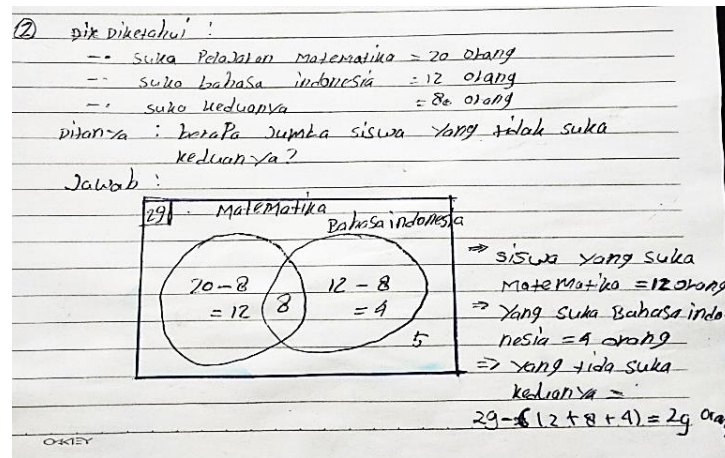 ② Dik Diketahui :
-• suka Pelajaran Matematika = 20 orang
-• suko bahasa indonesia = 12 orang
-• suko keduanya = 8 orang
Ditanya : beraPa Jumba siswa yang tidak suka
keduan ya?
Jawab :
29 • Matematika
Bahasa indonesia
20 - 8
= 12
8
12 - 8
= 4
5
⇒ siswa yang suka
Matematika = 12 orang
⇒ Yang suka Bahasa indo
nesia = 4 orang
⇒ yang tida suka
keduanya =
29 - (12 + 8 + 4) = 29 Ora
OKEY